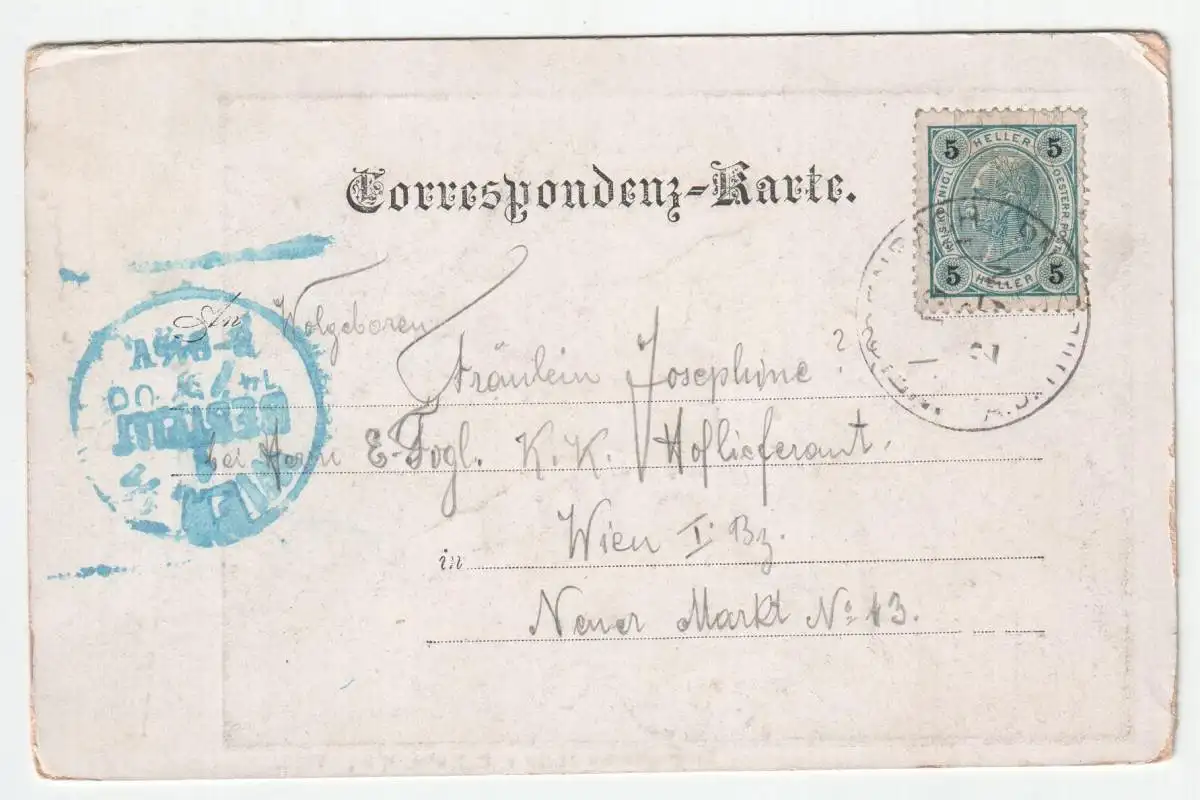 Correspondenz-Karte.
5 HELLER 5
KAIS. KOENIGL. OESTERR. POST
5 HELLER 5
An Wolgeboren
Fräulein Josephine ?
bei Herrn E. Fogl. K. K. Hoflieferant.
in Wien I. Bz.
Neuer Markt No 13.
BESTELLT
WIEN